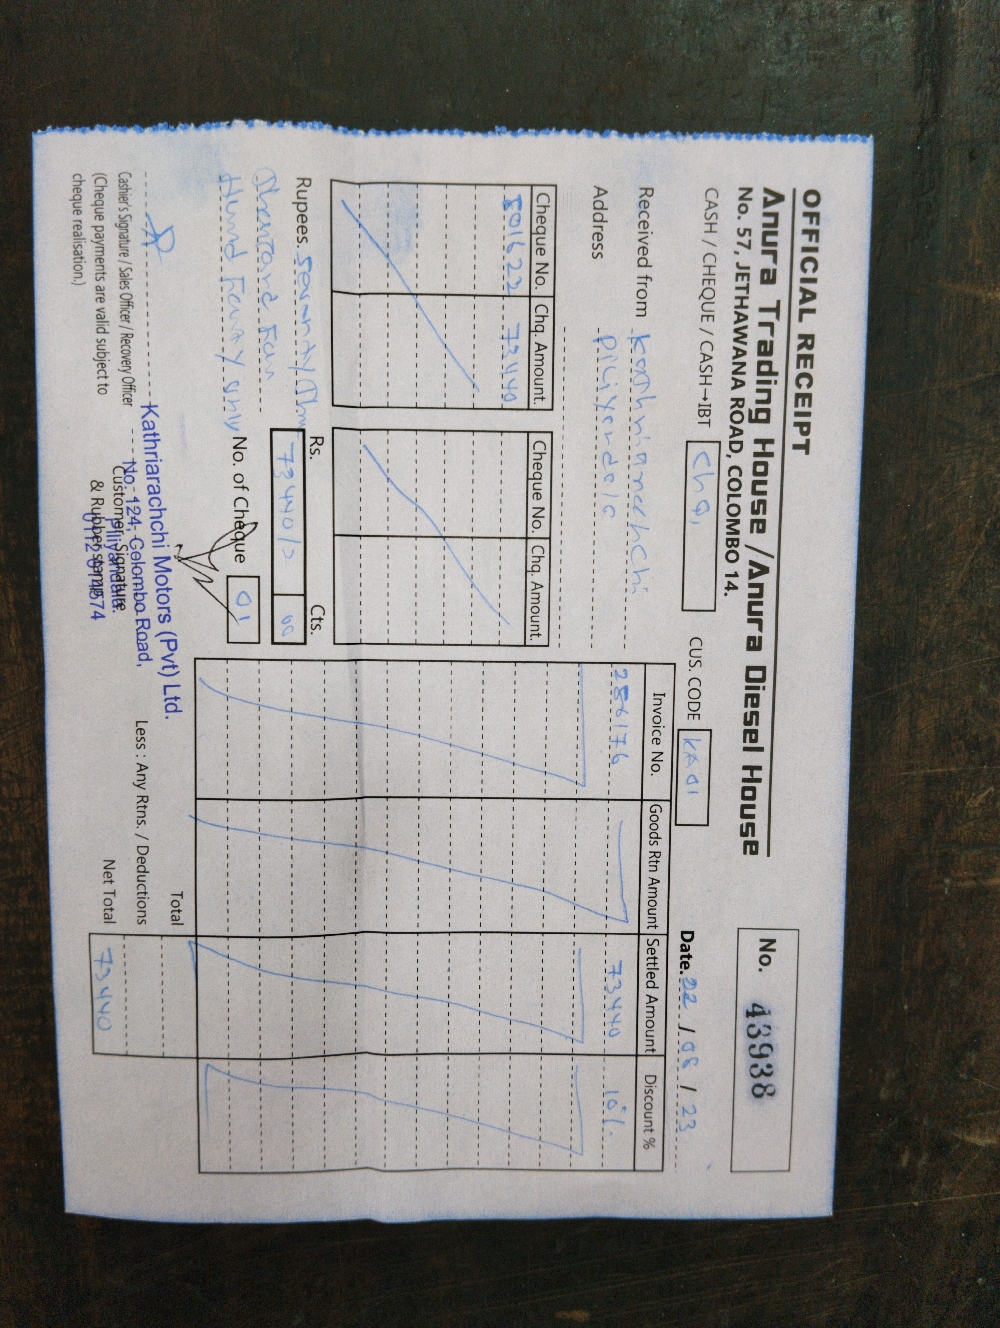 OFFICIAL RECEIPT
Anura Trading House / Anura Diesel House
No. 57, JETHAWANA ROAD, COLOMBO 14.
No. 43938
CASH / CHEQUE / CASH→IBT Chq,
CUS. CODE KA01
Date. 22 / 08 / 23
Received from Kathriarachchi
Address Piliyandala
Cheque No. Chq. Amount. Cheque No. Chq. Amount.
801623 73440
Invoice No. Goods Rtn Amount Settled Amount Discount %
256176 73440 10%
Rupees.
Hund Fourty only
Rs. Cts.
73440/= 00
No. of Cheque 01
Total
Less : Any Rtns. / Deductions
Net Total 73440
Cashier's Signature / Sales Officer / Recovery Officer
(Cheque payments are valid subject to
cheque realisation.)
Customer Signature
& Rubber stamp
Kathriarachchi Motors (Pvt) Ltd.
No. 124, Colombo Road,
Piliyandala.